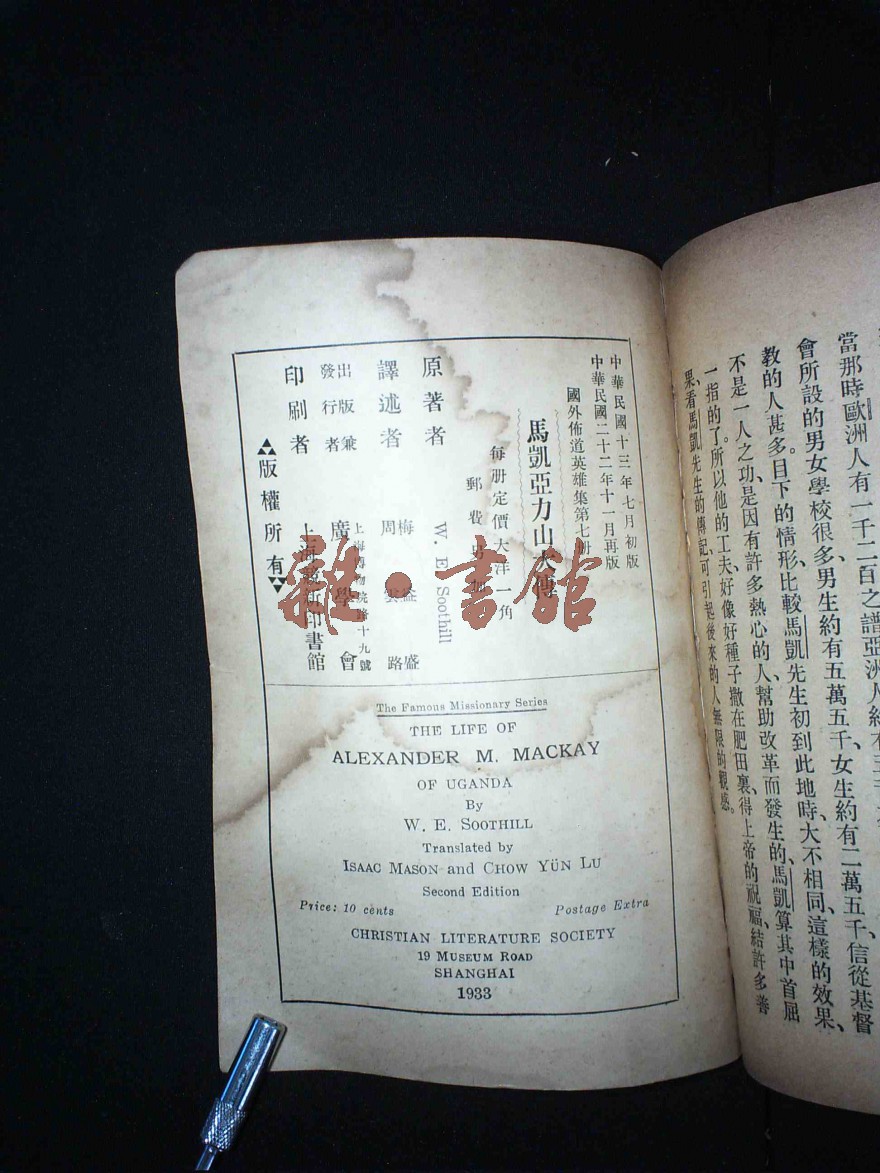 當那時歐洲人有一千二百之譜亞洲人約有
會所設的男女學校很多男生約有五萬五千、女生約有二萬五千、信從基督
教的人甚多。目下的情形、比較馬凱先生初到此地時、大不相同、這樣的效果、
不是一人之功、是因有許多熱心的人、幫助改革而發生的、馬凱算其中首屈
一指的了。所以他的工夫、好像好種子撒在肥田裏、得上帝的祝福、結許多善
果、看馬凱先生的傳記、可引起後來的人無限的觀感。
中華民國十三年七月初版
中華民國二十二年十一月再版
國外佈道英雄集第七冊
馬凱亞力山大傳
每册定價大洋一角
郵費另加
原著者 W. E. Soothill
譯述者 梅益盛 周雲路
出版兼發行者 上海博物院路十九號 廣學會
印刷者 上海 印書館
版權所有
The Famous Missionary Series
THE LIFE OF
ALEXANDER M. MACKAY
OF UGANDA
By
W. E. SOOTHILL
Translated by
ISAAC MASON and CHOW YÜN LU
Second Edition
Price: 10 cents Postage Extra
CHRISTIAN LITERATURE SOCIETY
19 MUSEUM ROAD
SHANGHAI
1933
雜·書館